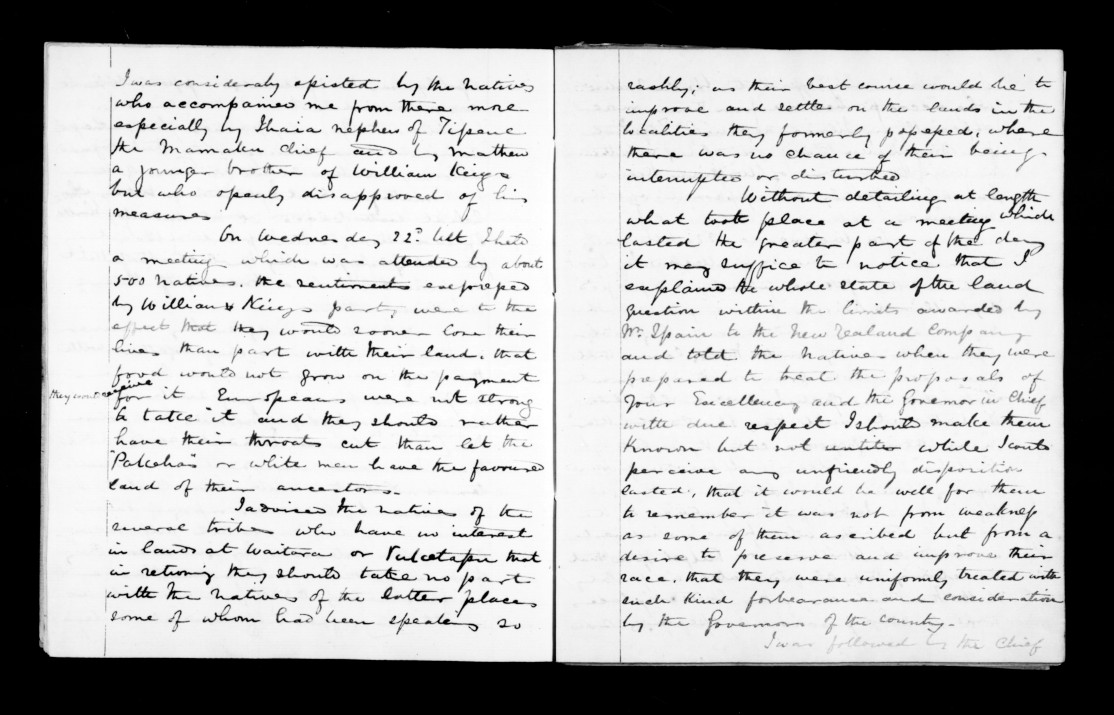 I was considerably assisted by the Natives
who accompanied me from there more
especially by Ihaia nephew of
the Mamaku Chief and by Mathew
a younger brother of William King
but who openly disapproved of his
measures
On Wednesday 22d Ult I held
a meeting which was attended by about
500 Natives. the sentiments expressed
by William Kings party were to the
effect that they would sooner lose their
lives than part with their land. that
food would not grow on the payment
they would receive
for it Europeans were not strong
to take it and they should rather
have their throats cut than let the
"Pakehas" or white men have the favoured
land of their ancestors.
I advised the natives of the
several tribes who have no interest
in lands at Waitera or that
in retiring they should take no part
with the natives of the latter places
some of whom had been speaking so
rashly; as their best course would be to
improve and settle on the lands in the
localities they formerly possessed, where
there was no chance of their being
interrupted or disturbed
Without detailing at length
what took place at a meeting which
lasted the greater part of the day
it may suffice to notice that I
explained the whole state of the land
question within the limits awarded by
Mr. Spain to the New Zealand Company
and told the Natives when they were
prepared to treat the proposals of
Your Excellency and the Governor in Chief
with due respect I should make them
known but not while I could
perceive any unfriendly disposition
lasted, that it would be well for them
to remember it was not from weakness
as some of them ascribed but from a
desire to preserve and improve their
race. that they were uniformly treated with
such kind forbearance and consideration
by the Governors of the country.
I was followed by the Chief